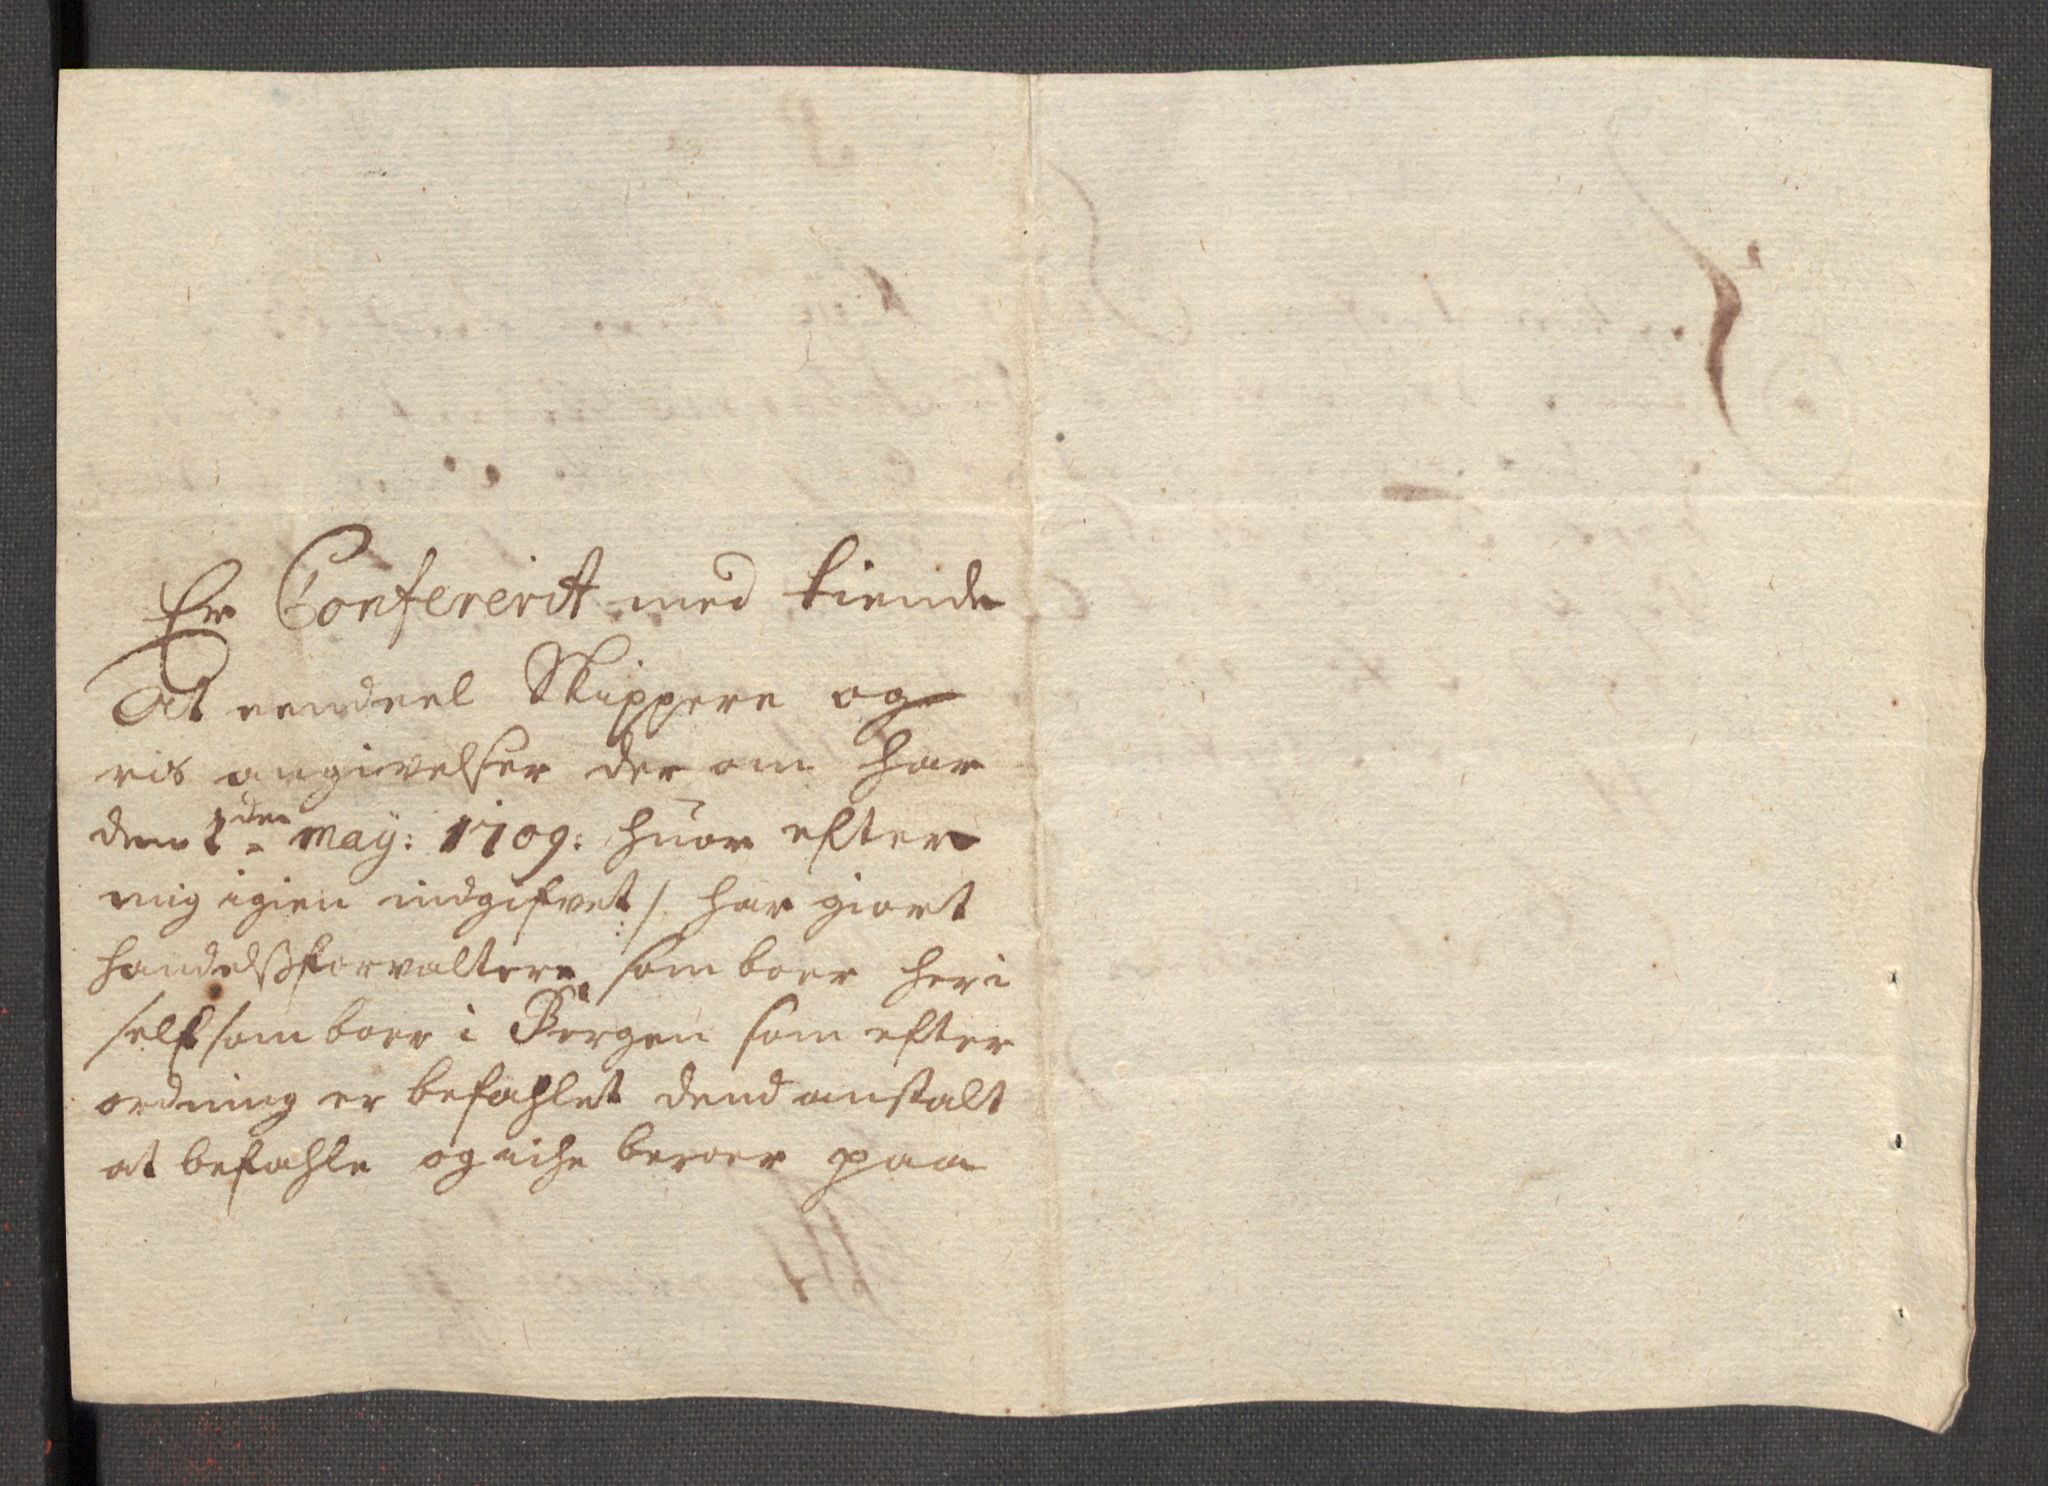 Er Confererit med tiende
At eendeel Skippere og
ris angivelser der om har
den 1den May: 1709: huor efter
mig igien indgifvet :/ har giort
handelsforvaltere som boer her i
self som boer i Bergen som efter
ordning er befahlet dend anstalt
at befahle og iche beroer paa